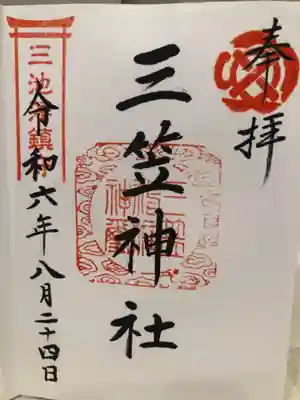 奉拝
三笠神社
三池
鎮
令和六年八月二十四日